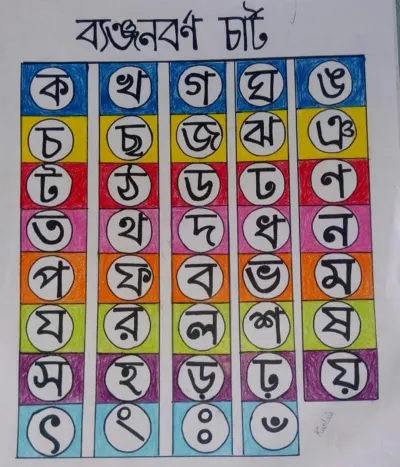 ব্যঞ্জনবর্ণ চার্ট
ক খ গ ঘ ঙ
চ ছ জ ঝ ঞ
ট ঠ ড ঢ ণ
ত থ দ ধ ন
প ফ ব ভ ম
য র ল শ ষ
স হ ড় ঢ় য়
ৎ ং ঃ ঁ